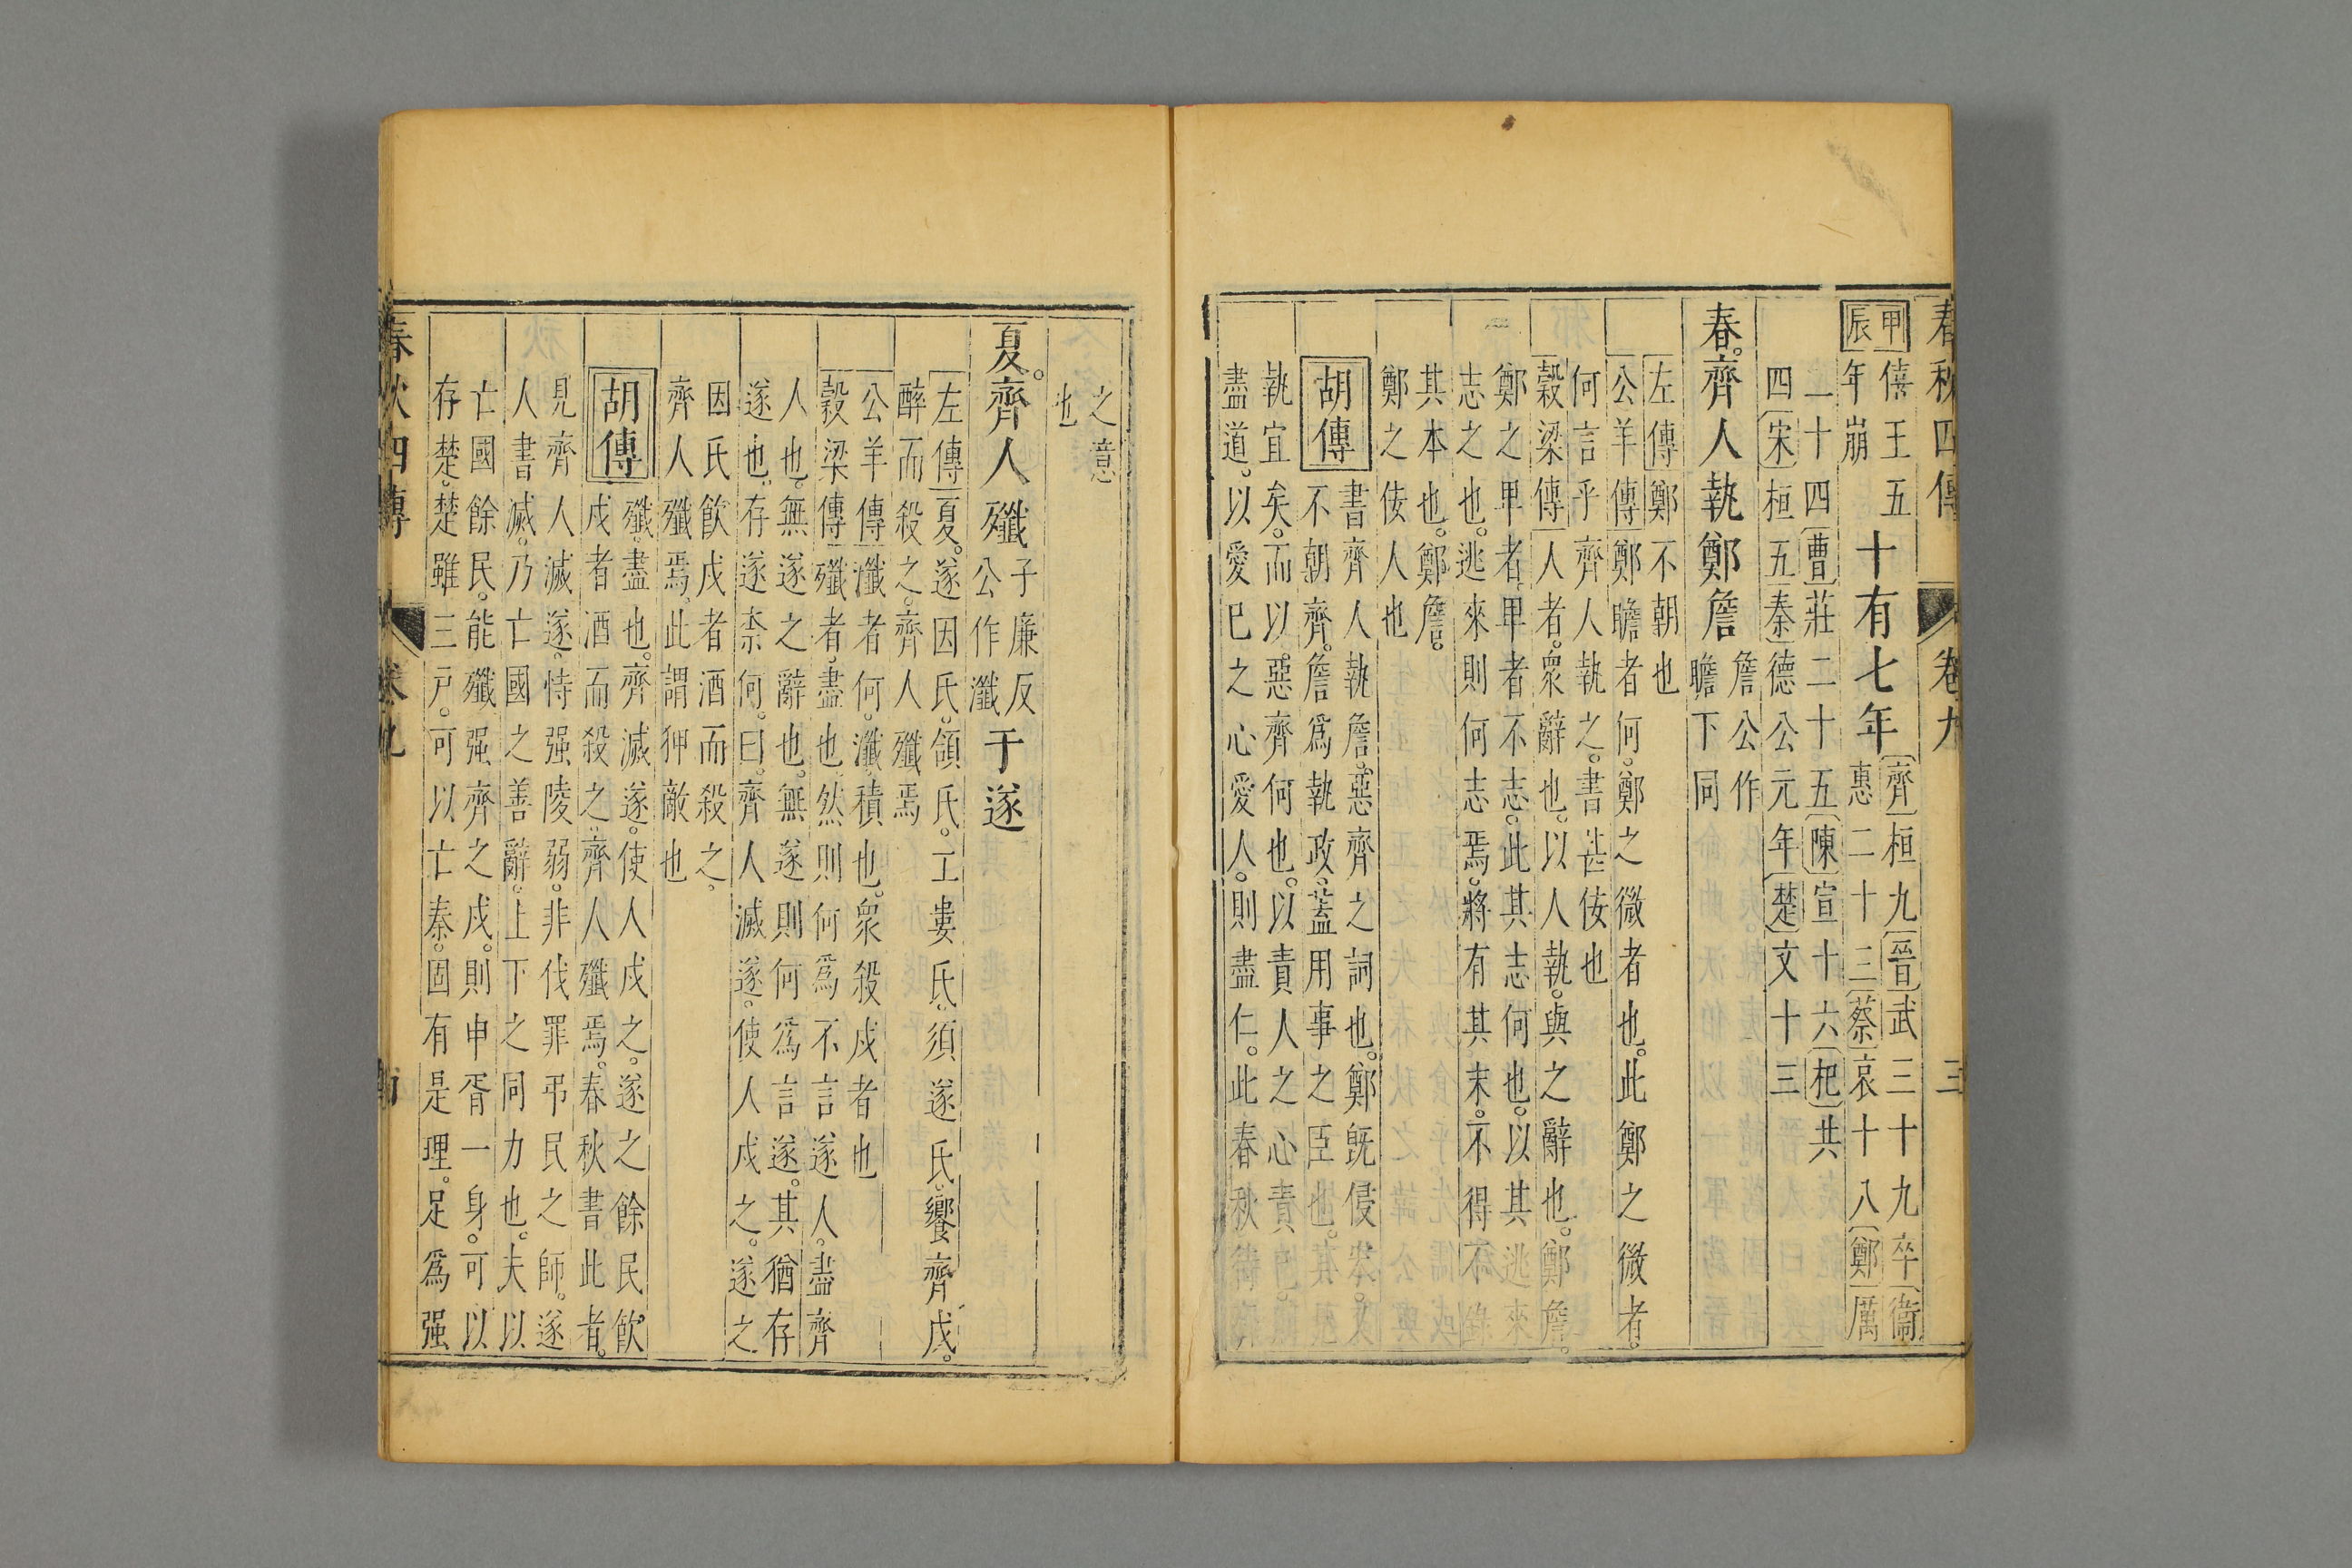 春秋四傳 卷九 三
甲辰 僖王五年崩 十有七年 齊桓九晉武三十九卒衞
惠二十三蔡哀十八鄭厲
二十四曹莊二十五陳宣十六杞共
四宋桓五秦德公元年楚文十三
春齊人執鄭詹 詹公作
瞻下同
左傳鄭不朝也
公羊傳鄭瞻者何鄭之微者也此鄭之微者
何言乎齊人執之書甚佞也
穀梁傳人者衆辭也以人執與之辭也鄭詹
鄭之卑者卑者不志此其志何也以其逃來
志之也逃來則何志焉將有其末不得不錄
其本也鄭詹
鄭之佞人也
胡傳 書齊人執詹惡齊之詞也鄭旣侵宋又
不朝齊詹爲執政蓋用事之臣也
執宜矣而以惡齊何也以責人之心責
盡道以愛已之心愛人則盡仁此春秋
之意
也
夏齊人殲 子廉反
公作瀸 于遂
左傳夏遂因氏頜氏工婁氏須遂氏饗齊戍
醉而殺之齊人殲焉
公羊傳瀸者何瀸積也衆殺戍者也
穀梁傳殲者盡也然則何爲不言遂人盡齊
人也無遂之辭也無遂則何爲言遂其猶存
遂也存遂柰何曰齊人滅遂使人戍之遂之
因氏飮戍者酒而殺之
齊人殲焉此謂狎敵也
胡傳 殲盡也齊滅遂使人戍之遂之餘民飮
戍者酒而殺之齊人殲焉春秋書此者
見齊人滅遂恃强陵弱非伐罪弔民之師遂
人書滅乃亡國之善辭上下之同力也夫以
亡國餘民能殲强齊之戍則申胥一身可以
存楚楚雖三戸可以亡秦固有是理足爲强
春秋四傳 卷九